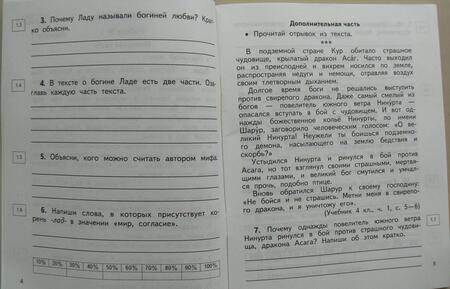 1.3
3. Почему Ладу называли богиней любви? Крат-
ко объясни.
1.4
4. В тексте о богине Ладе есть две части. Оза-
главь каждую часть текста.
1.5
5. Объясни, кого можно считать автором мифа.
1.6
6. Напиши слова, в которых присутствует ко-
рень -лад- в значении «мир, согласие».
10% 20% 30% 40% 50% 60% 70% 80% 90% 100%
4
Дополнительная часть
• Прочитай отрывок из текста.
***
В подземной стране Кур обитало страшное
чудовище, крылатый дракон Асаг. Часто выходил
он из преисподней и вихрем носился по земле,
распространяя недуги и немощи, отравляя воздух
своим тлетворным дыханием.
Долгое время боги не решались выступить
против свирепого дракона. Даже самый смелый из
богов — повелитель южного ветра Нинурта —
опасался вступать в бой с чудовищем. И вот од-
нажды божественное копьё Нинурты, по имени
Шарур, заговорило человеческим голосом: «О ве-
ликий Нинурта! Неужели ты боишься подземно-
го демона, насылающего на землю бедствия и
скорбь?»
Устыдился Нинурта и ринулся в бой против
Асага, но тот взглянул своими страшными, мертвя-
щими глазами, и великий бог смутился и умчал-
ся прочь, подобно птице.
Вновь обратился Шарур к своему господину:
«Не бойся и не страшись. Метни меня в свирепо-
го дракона, и я уничтожу его».
(Учебник 4 кл., ч. 1, с. 5—6)
1.7
7. Почему однажды повелитель южного ветра
Нинурта ринулся в бой против страшного чудови-
ща, дракона Асага? Напиши об этом кратко.
5